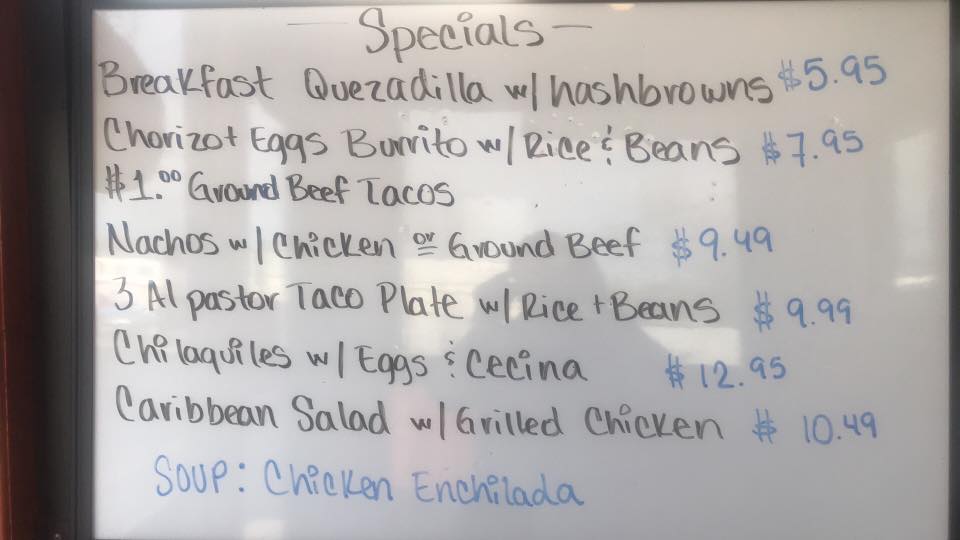 — Specials —
Breakfast Quezadilla w/ hashbrowns $5.95
Chorizo + Eggs Burrito w/ Rice & Beans $7.95
$1.00 Ground Beef Tacos
Nachos w/ Chicken or Ground Beef $9.49
3 Al pastor Taco Plate w/ Rice + Beans $9.99
Chilaquiles w/ Eggs & Cecina $12.95
Caribbean Salad w/ Grilled Chicken $10.49
Soup: Chicken Enchilada